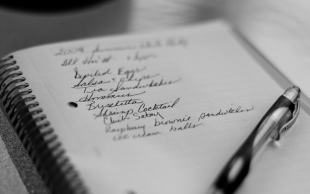 2009 Summer
Deviled Eggs
Salsa & Chips
Tea Sandwiches
Bruschetta
Shrimp Cocktail
Chick Satay
Raspberry Brownie Sandwiches
ice cream balls